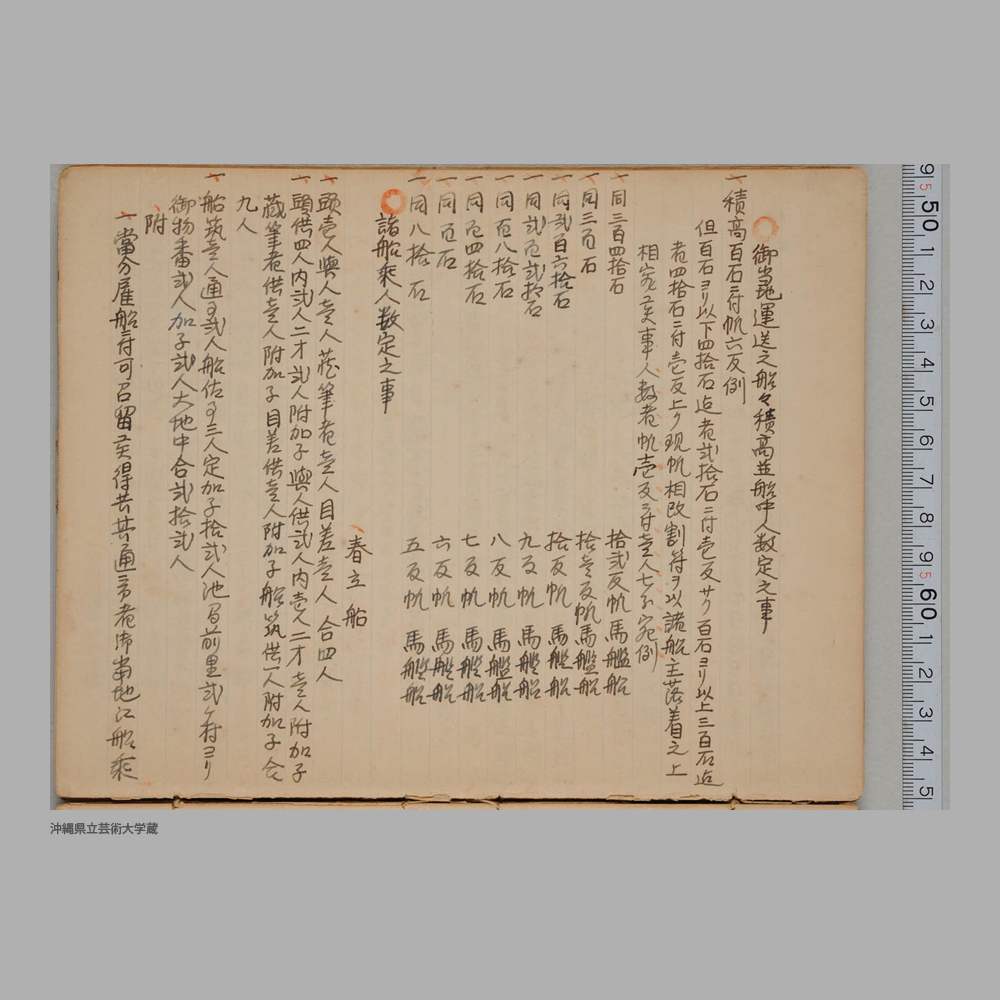 御當地運送之船々積高並船中人数定之事
一 積高百石ニ付帆六反例
但百石ヨリ以下四拾石迠者弐拾石ニ付壱反サゲ百石ヨリ以上三百石迠
者四拾石ニ付壱反上ゲ現帆相改割符ヲ以諸船主落着之上
相究メ事人数者帆壱反ニ付壱人七分宛例
一 同三百四拾石 拾弐反帆 馬艦船
一 同三百石 拾壱反帆 馬艦船
一 同弐百六拾石 拾反帆 馬艦船
一 同弐百弐拾石 九反帆 馬艦船
一 同百八拾石 八反帆 馬艦船
一 同百四拾石 七反帆 馬艦船
一 同百石 六反帆 馬艦船
一 同八拾石 五反帆 馬艦船
諸船乘人数定之事
春立船
一 頭壱人與人壱人蔵筆者壱人目差壱人合四人
一 頭供四人内弐人二才弐人附加子與人供弐人内壱人二才壱人附加子
蔵筆者供壱人附加子目差供壱人附加子船筑供一人附加子合
九人
一 船筑壱人通事弐人船佐事三人定加子拾弐人池間前里弐ヶ村ヨリ
御物番弐人加子弐人大地中合弐拾弐人
附
一 當分雇船ニ付可召留メ得共共通事者御當地江船乘